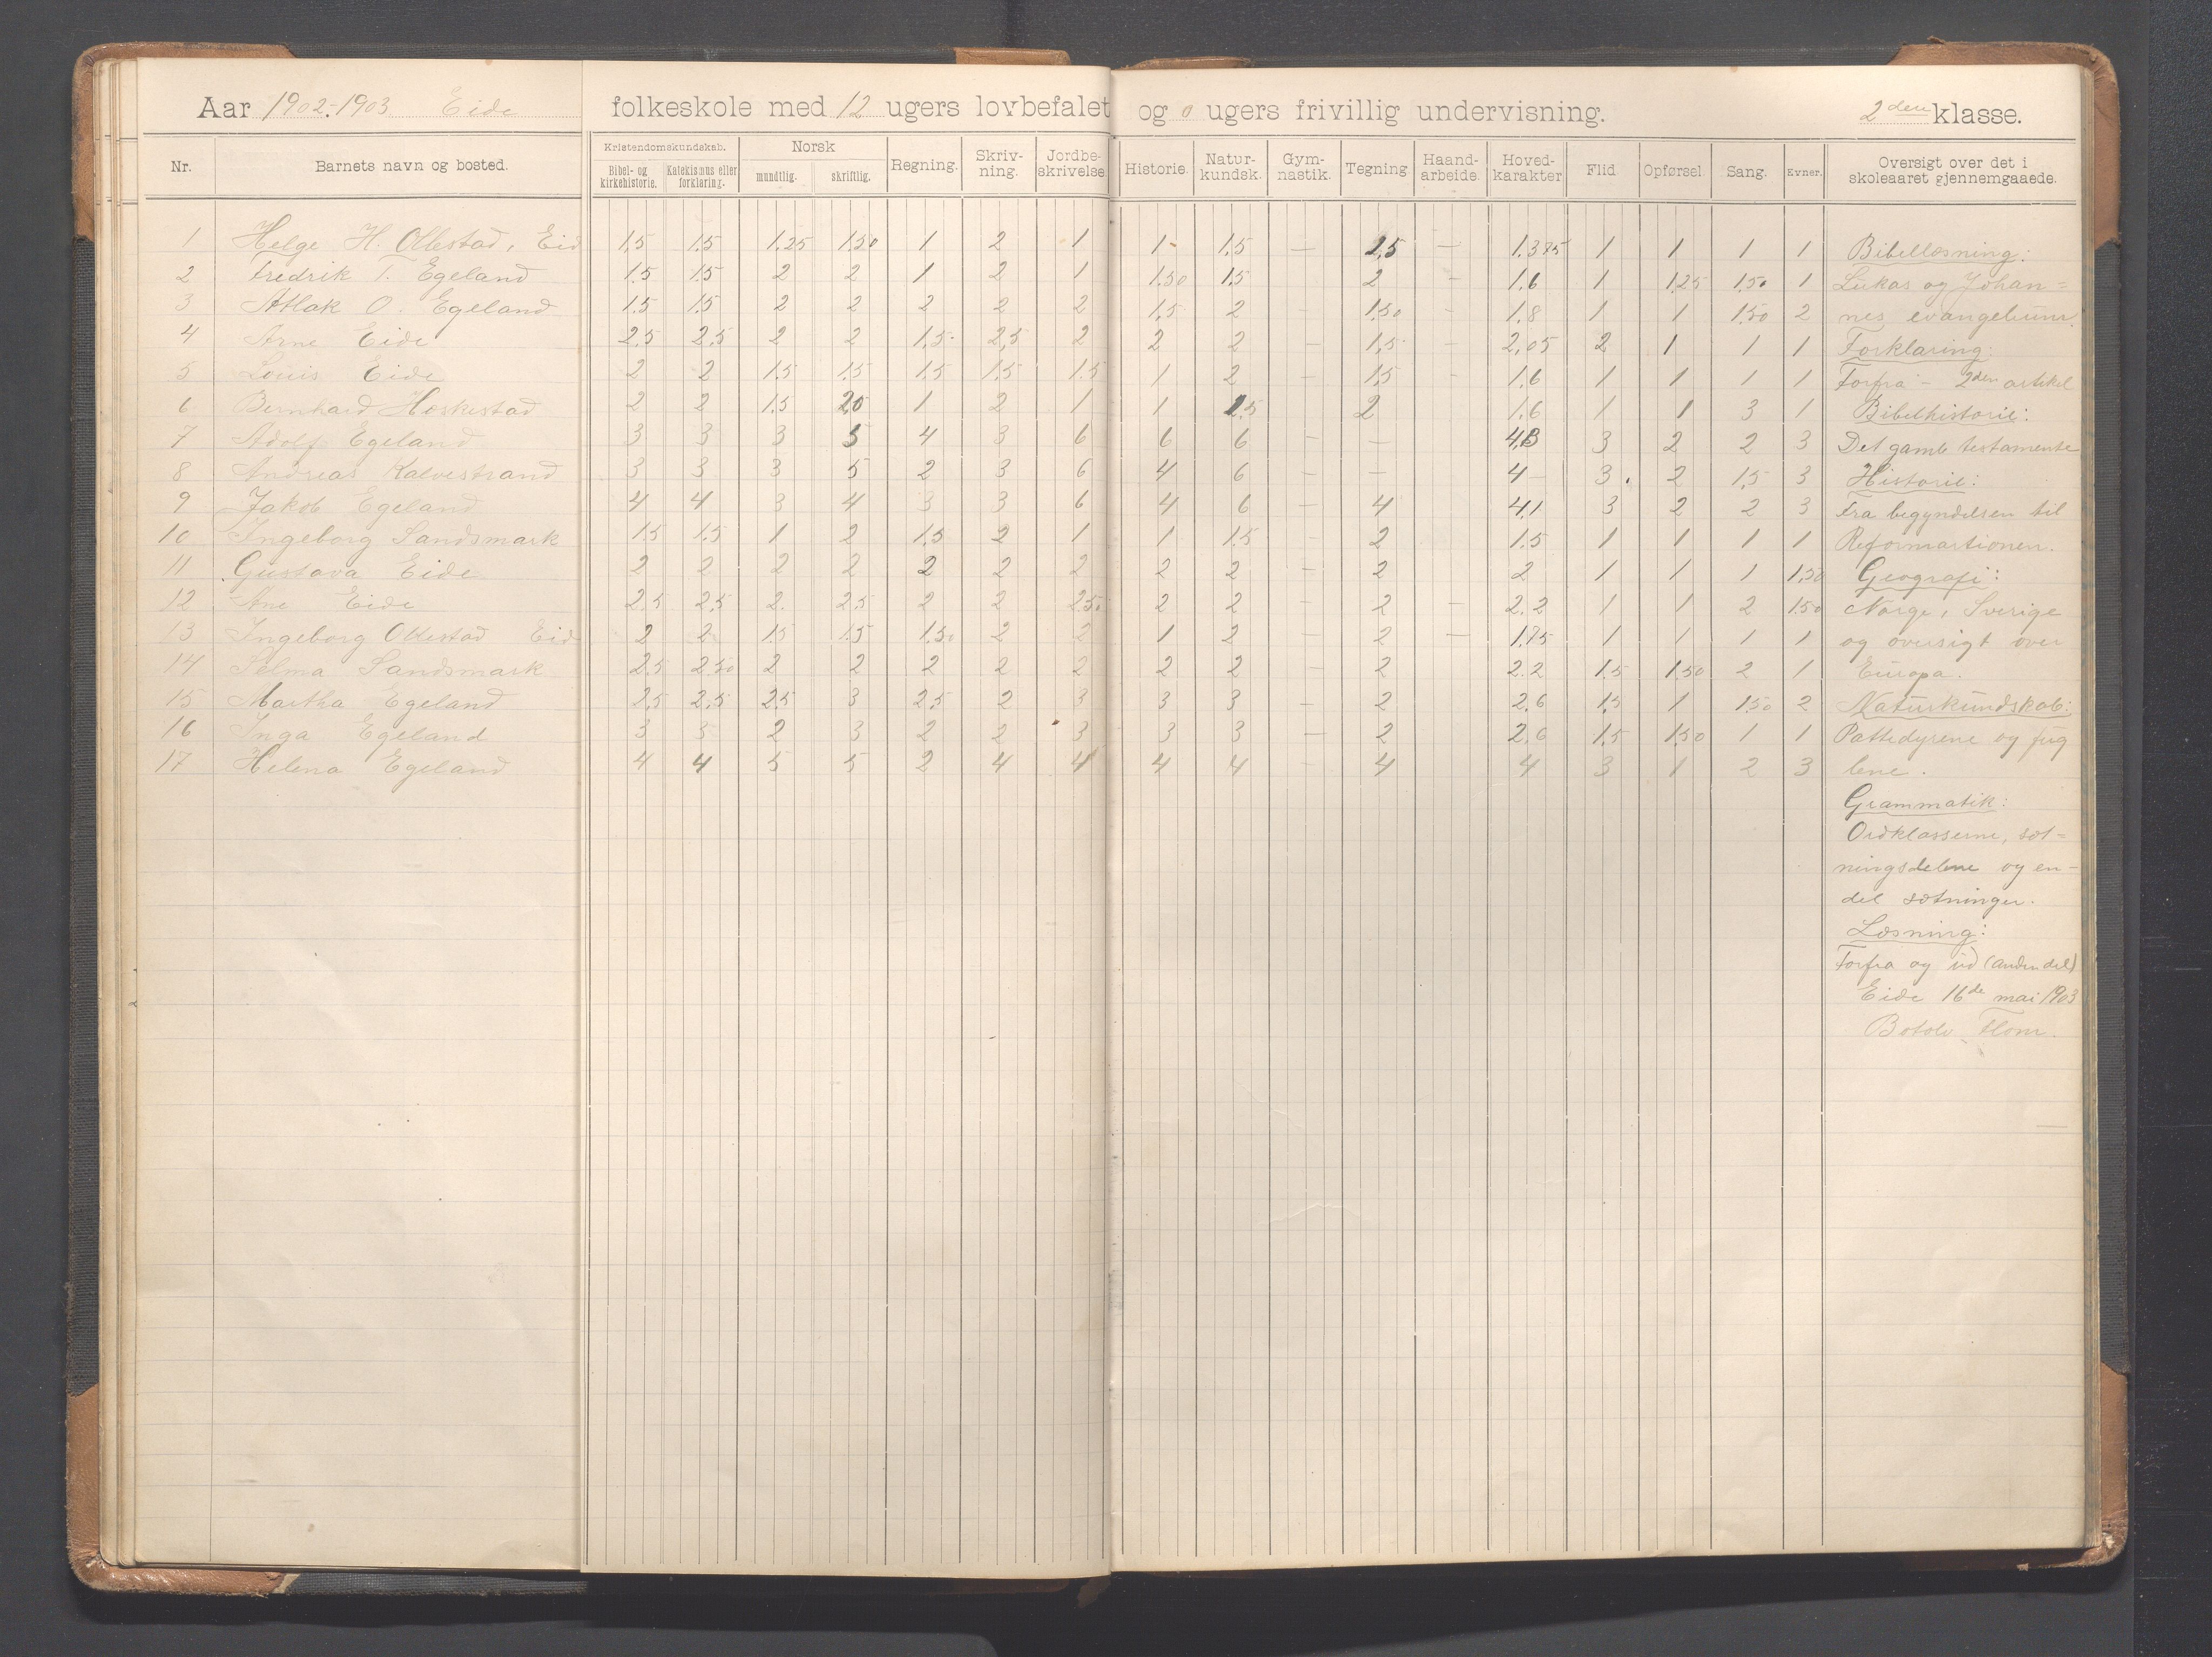 Aar 1902-1903 Eide folkeskole med 12 ugers lovbefalet og 0 ugers frivillig undervisning. 2den klasse.
Nr. Barnets navn og bosted. Kristendomskundskab. Bibel- og kirkehistorie. Katekismus eller forklaring. Norsk mundtlig. skriftlig. Regning. Skriv-ning. Jordbe-skrivelse Historie. Natur-kundsk. Gym-nastik. Tegning Haand-arbeide. Hoved-karakter Flid. Opførsel. Sang. Evner. Oversigt over det i skoleaaret gjennemgaaede.
1 Helge H. Ollestad, Eid 1,5 1,5 1,25 1,50 1 2 1 1 1,5 — 2,5 — 1,375 1 1 1 1 Bibellæsning:
2 Fredrik T. Egeland 1,5 1,5 2 2 1 2 1 1,50 1,5 2 - 1,6 1 1,25 1,50 1 Lukas og Johan=
3 Atlak O. Egeland 1,5 1,5 2 2 2 2 2 1,5 2 - 1,50 - 1,8 1 1 1,50 2 nes evangelium.
4 Arne Eide 2,5 2,5 2 2 1,5 2,5 2 2 2 - 1,5 - 2,05 2 1 1 1 Forklaring:
5 Louis Eide 2 2 1,5 1,5 1,5 1,5 1,5 1 2 - 1,5 1,6 1 1 1 1 Forfra - 2den artikel
6 Bernhard Hæskestad 2 2 1,5 2,0 1 2 1 1 1,5 2 1,6 1 1 3 1 Bibelhistorie:
7 Adolf Egeland 3 3 3 5 4 3 6 6 6 - - 4,3 3 2 2 3 Det gamle testamente
8 Andreas Kalvestrand 3 3 3 5 2 3 6 4 6 - - 4 3 2 1,5 3 Historie:
9 Jakob Egeland 4 4 3 4 3 3 6 4 6 - 4 4,1 3 2 2 3 Fra begyndelsen til
10 Ingeborg Sandsmark 1,5 1,5 1 2 1,5 2 1 1 1,5 - 2 1,5 1 1 1 1 Reformartionen.
11 Gustava Eide 2 2 2 2 2 2 2 2 2 - 2 2 1 1 1 1,50 Geografi:
12 Ane Eide 2,5 2,5 2 2,5 2 2 2,50 2 2 - 2 - 2,2 1 1 2 1,50 Norge, Sverige
13 Ingeborg Ollestad Eid 2 2 1,5 1,5 1,50 2 2 1 2 - 2 - 1,75 1 1 1 1 og oversigt over
14 Selma Sandsmark 2,5 2,50 2 2 2 2 2 2 2 - 2 2.2 1,5 1,50 2 1 Europa.
15 Martha Egeland 2,5 2,5 2,5 3 2,5 2 3 3 3 - 2 2,6 1,5 1 1,50 2 Naturkundskab:
16 Inga Egeland 3 3 2 3 2 2 3 3 3 - 2 2,6 1,5 1,50 1 1 Pattedyrene og fug
17 Helena Egeland 4 4 5 5 2 4 4 4 4 - 4 4 3 1 2 3 lene.
Grammatik:
Ordklasserne, sæt=
ningsdelene og en-
del sætninger.
Læsning:
Forfra og ud (anden del)
Eide 16de mai 1903
Botolv Flom.